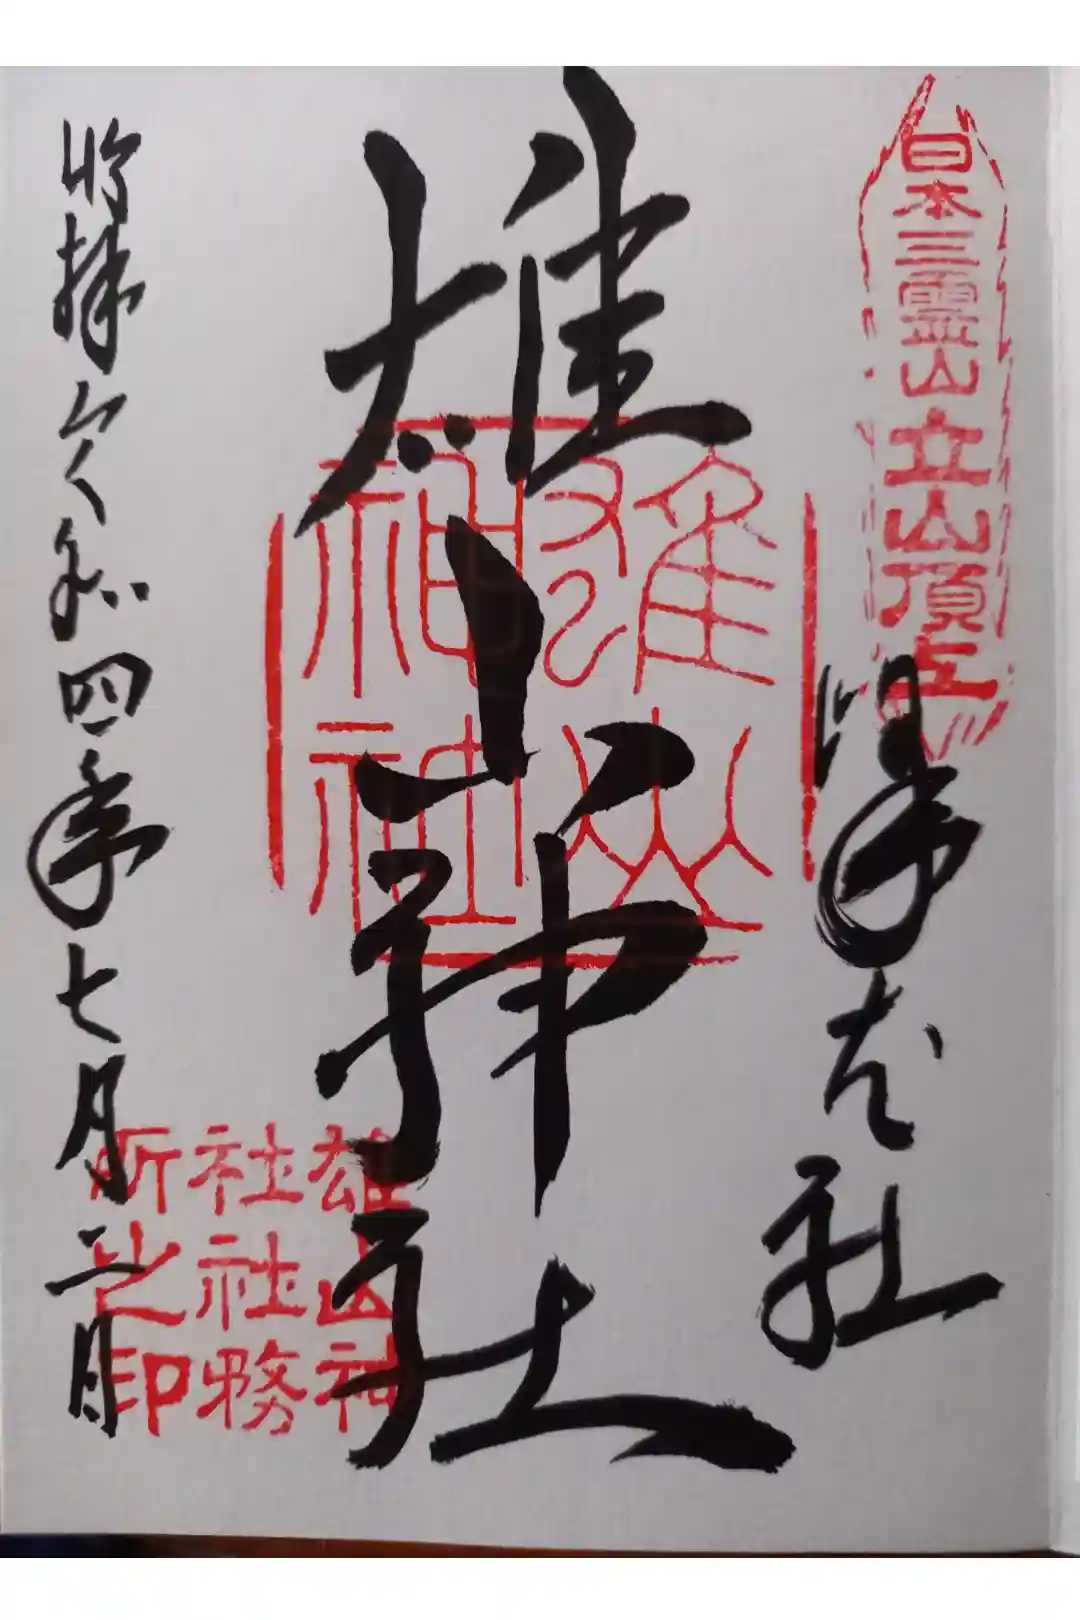 日本三霊山立山頂上
峰本社
雄山神社
雄山
神社
拝令和四年七月二日
雄山神
社社務
所之印